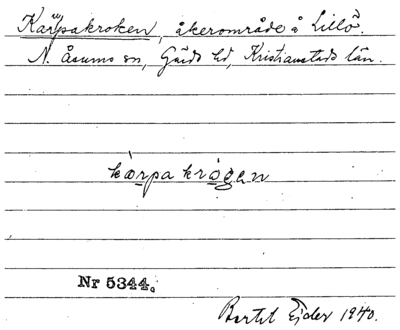 Karpakroken, åkerområde å Lillö.
N. Åsums sn, Gärds hd, Kristianstads län.
kàrpakrógan
Nr 5344.
Bertil Ejder 1940.